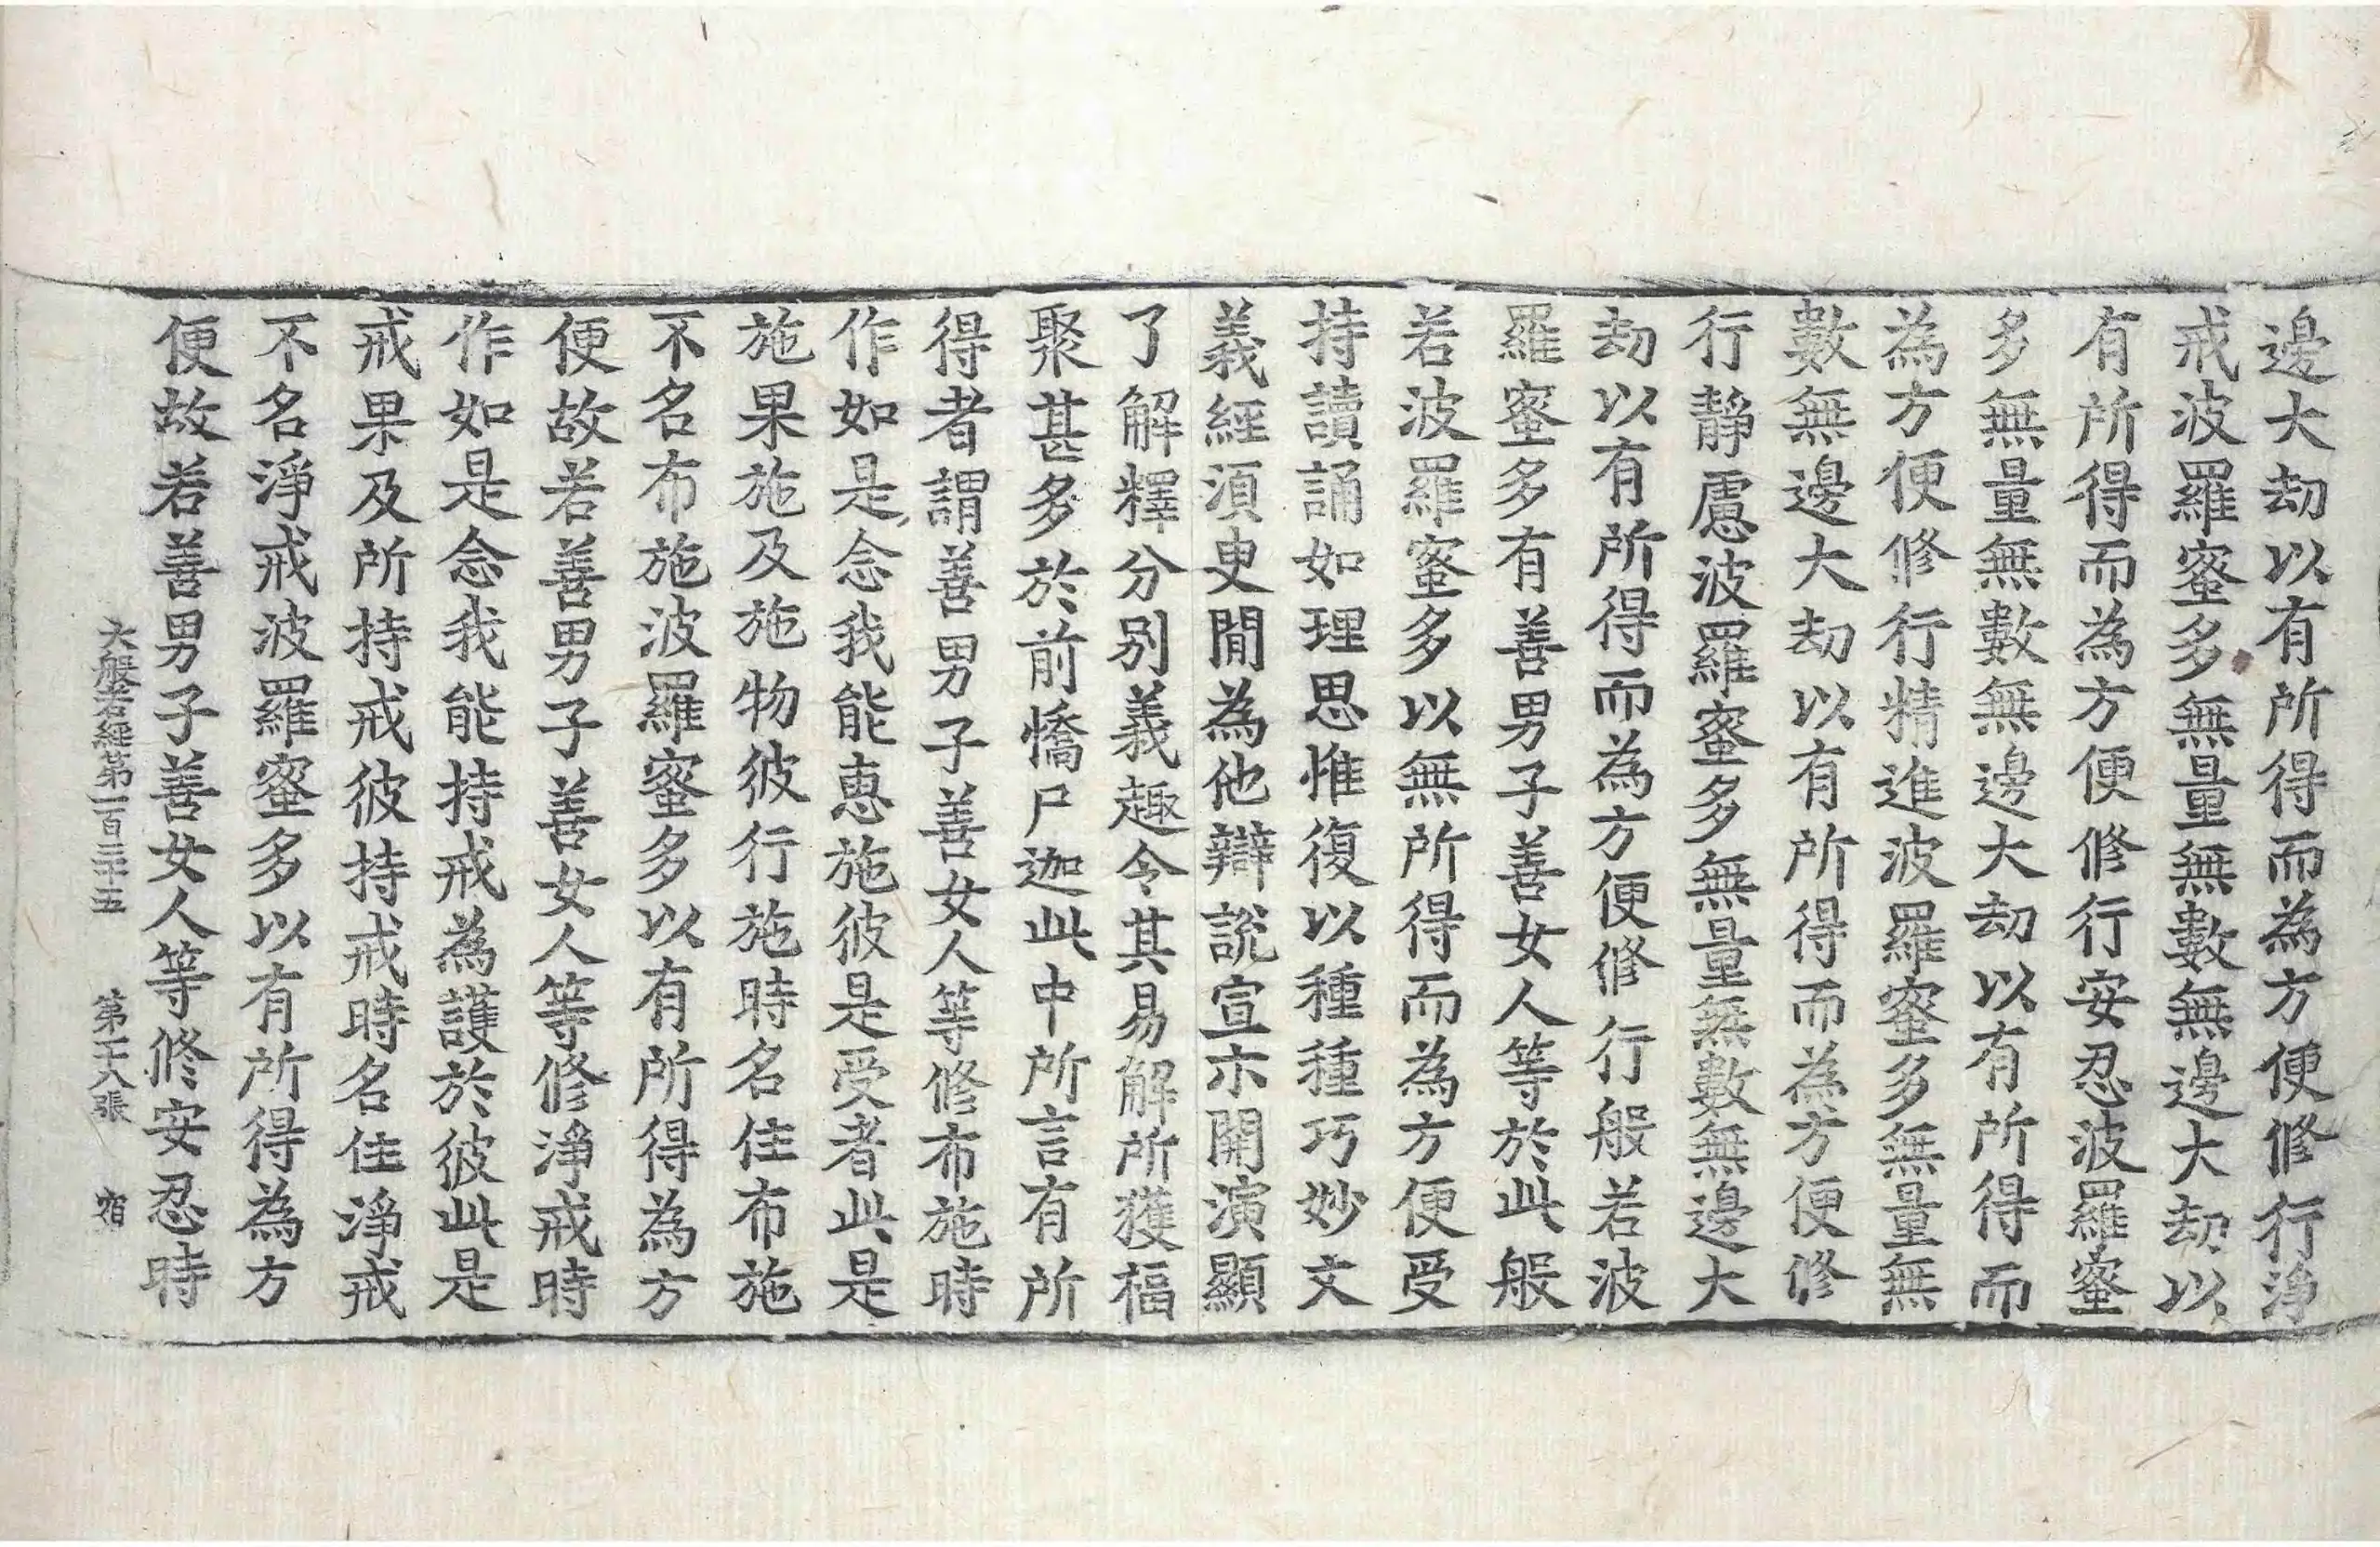 邊大劫以有所得而為方便修行淨
戒波羅蜜多無量無數無邊大劫以
有所得而為方便修行安忍波羅蜜
多無量無數無邊大劫以有所得而
為方便修行精進波羅蜜多無量無
數無邊大劫以有所得而為方便修
行靜慮波羅蜜多無量無數無邊大
劫以有所得而為方便修行般若波
羅蜜多有善男子善女人等於此般
若波羅蜜多以無所得而為方便受
持讀誦如理思惟復以種種巧妙文
義經須臾閒為他辯說宣示開演顯
了解釋分別義趣令其易解所獲福
聚甚多於前憍尸迦此中所言有所
得者謂善男子善女人等修布施時
作如是念我能惠施彼是受者此是
施果施及施物彼行施時名住布施
不名布施波羅蜜多以有所得為方
便故若善男子善女人等修淨戒時
作如是念我能持戒為護於彼此是
戒果及所持戒彼持戒時名住淨戒
不名淨戒波羅蜜多以有所得為方
便故若善男子善女人等修安忍時
大般若經第一百三十五 第十八張 宿